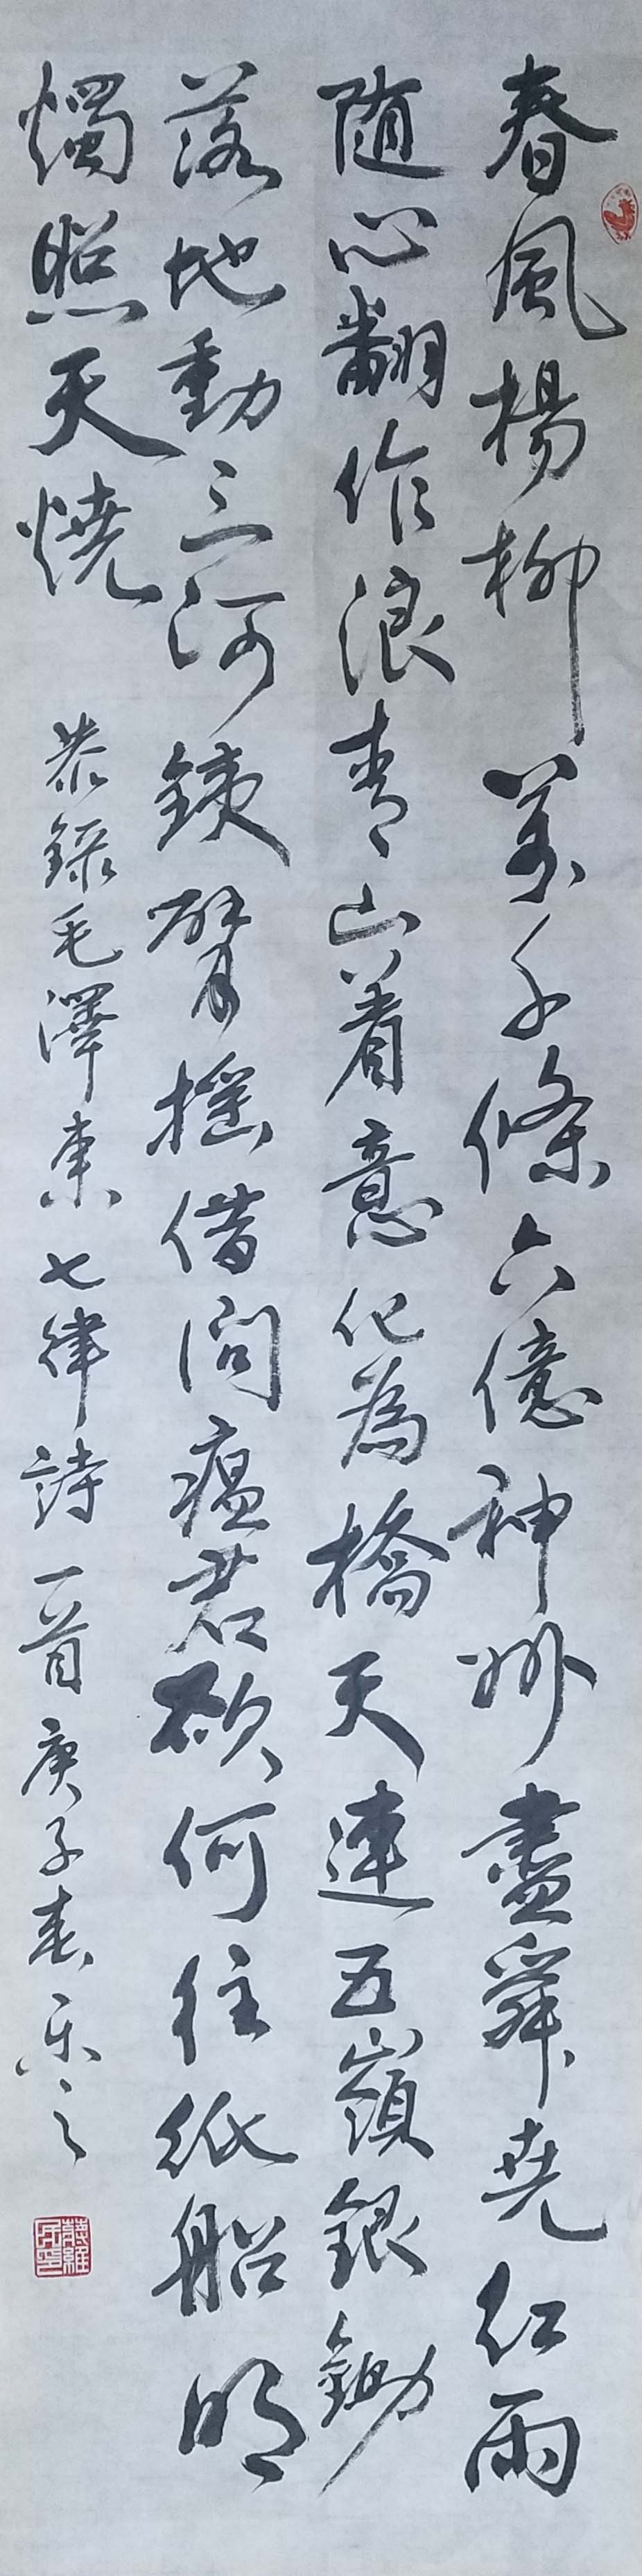 春風楊柳萬千條六億神州盡舜堯紅雨
隨心翻作浪青山着意化為橋天連五嶺銀鋤
落地動三河鐵臂搖借問瘟君欲何往紙船明
燭照天燒
恭錄毛澤東七律詩一首庚子春樂之